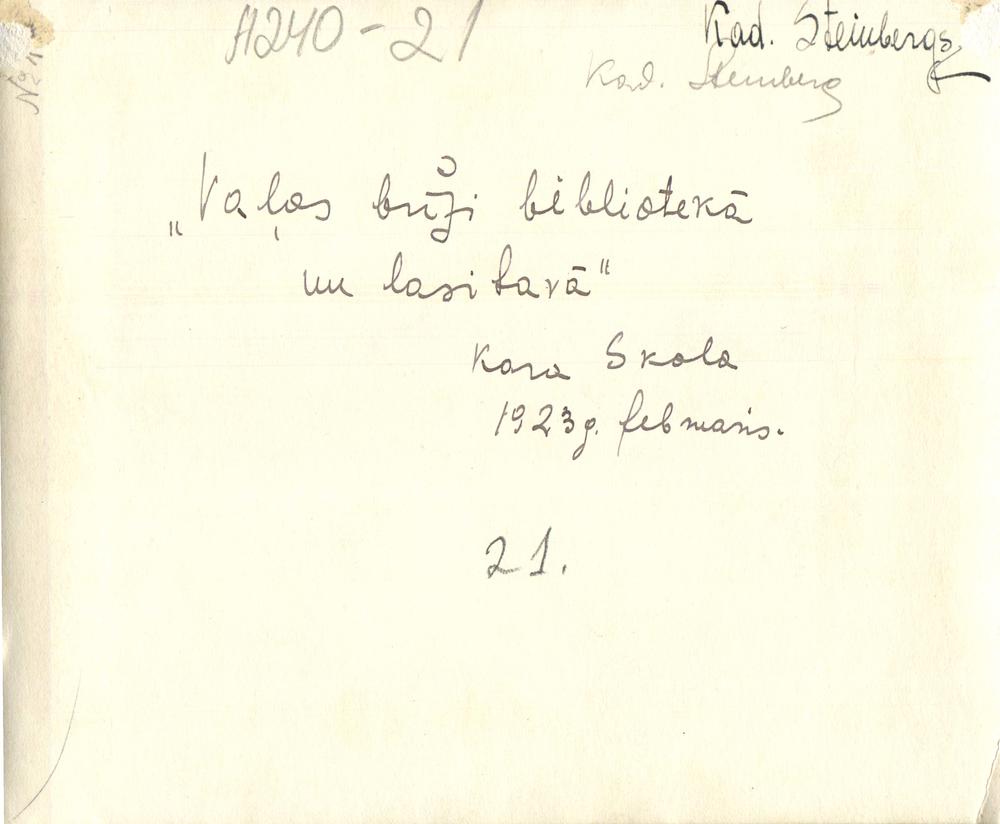 A240-21
Kad. Steinbergs
Kad. Steinberg
№ 21
„Vaļas brīži bibliotekā
un lasitavā"
Kara Skola
1923g. februaris.
21.